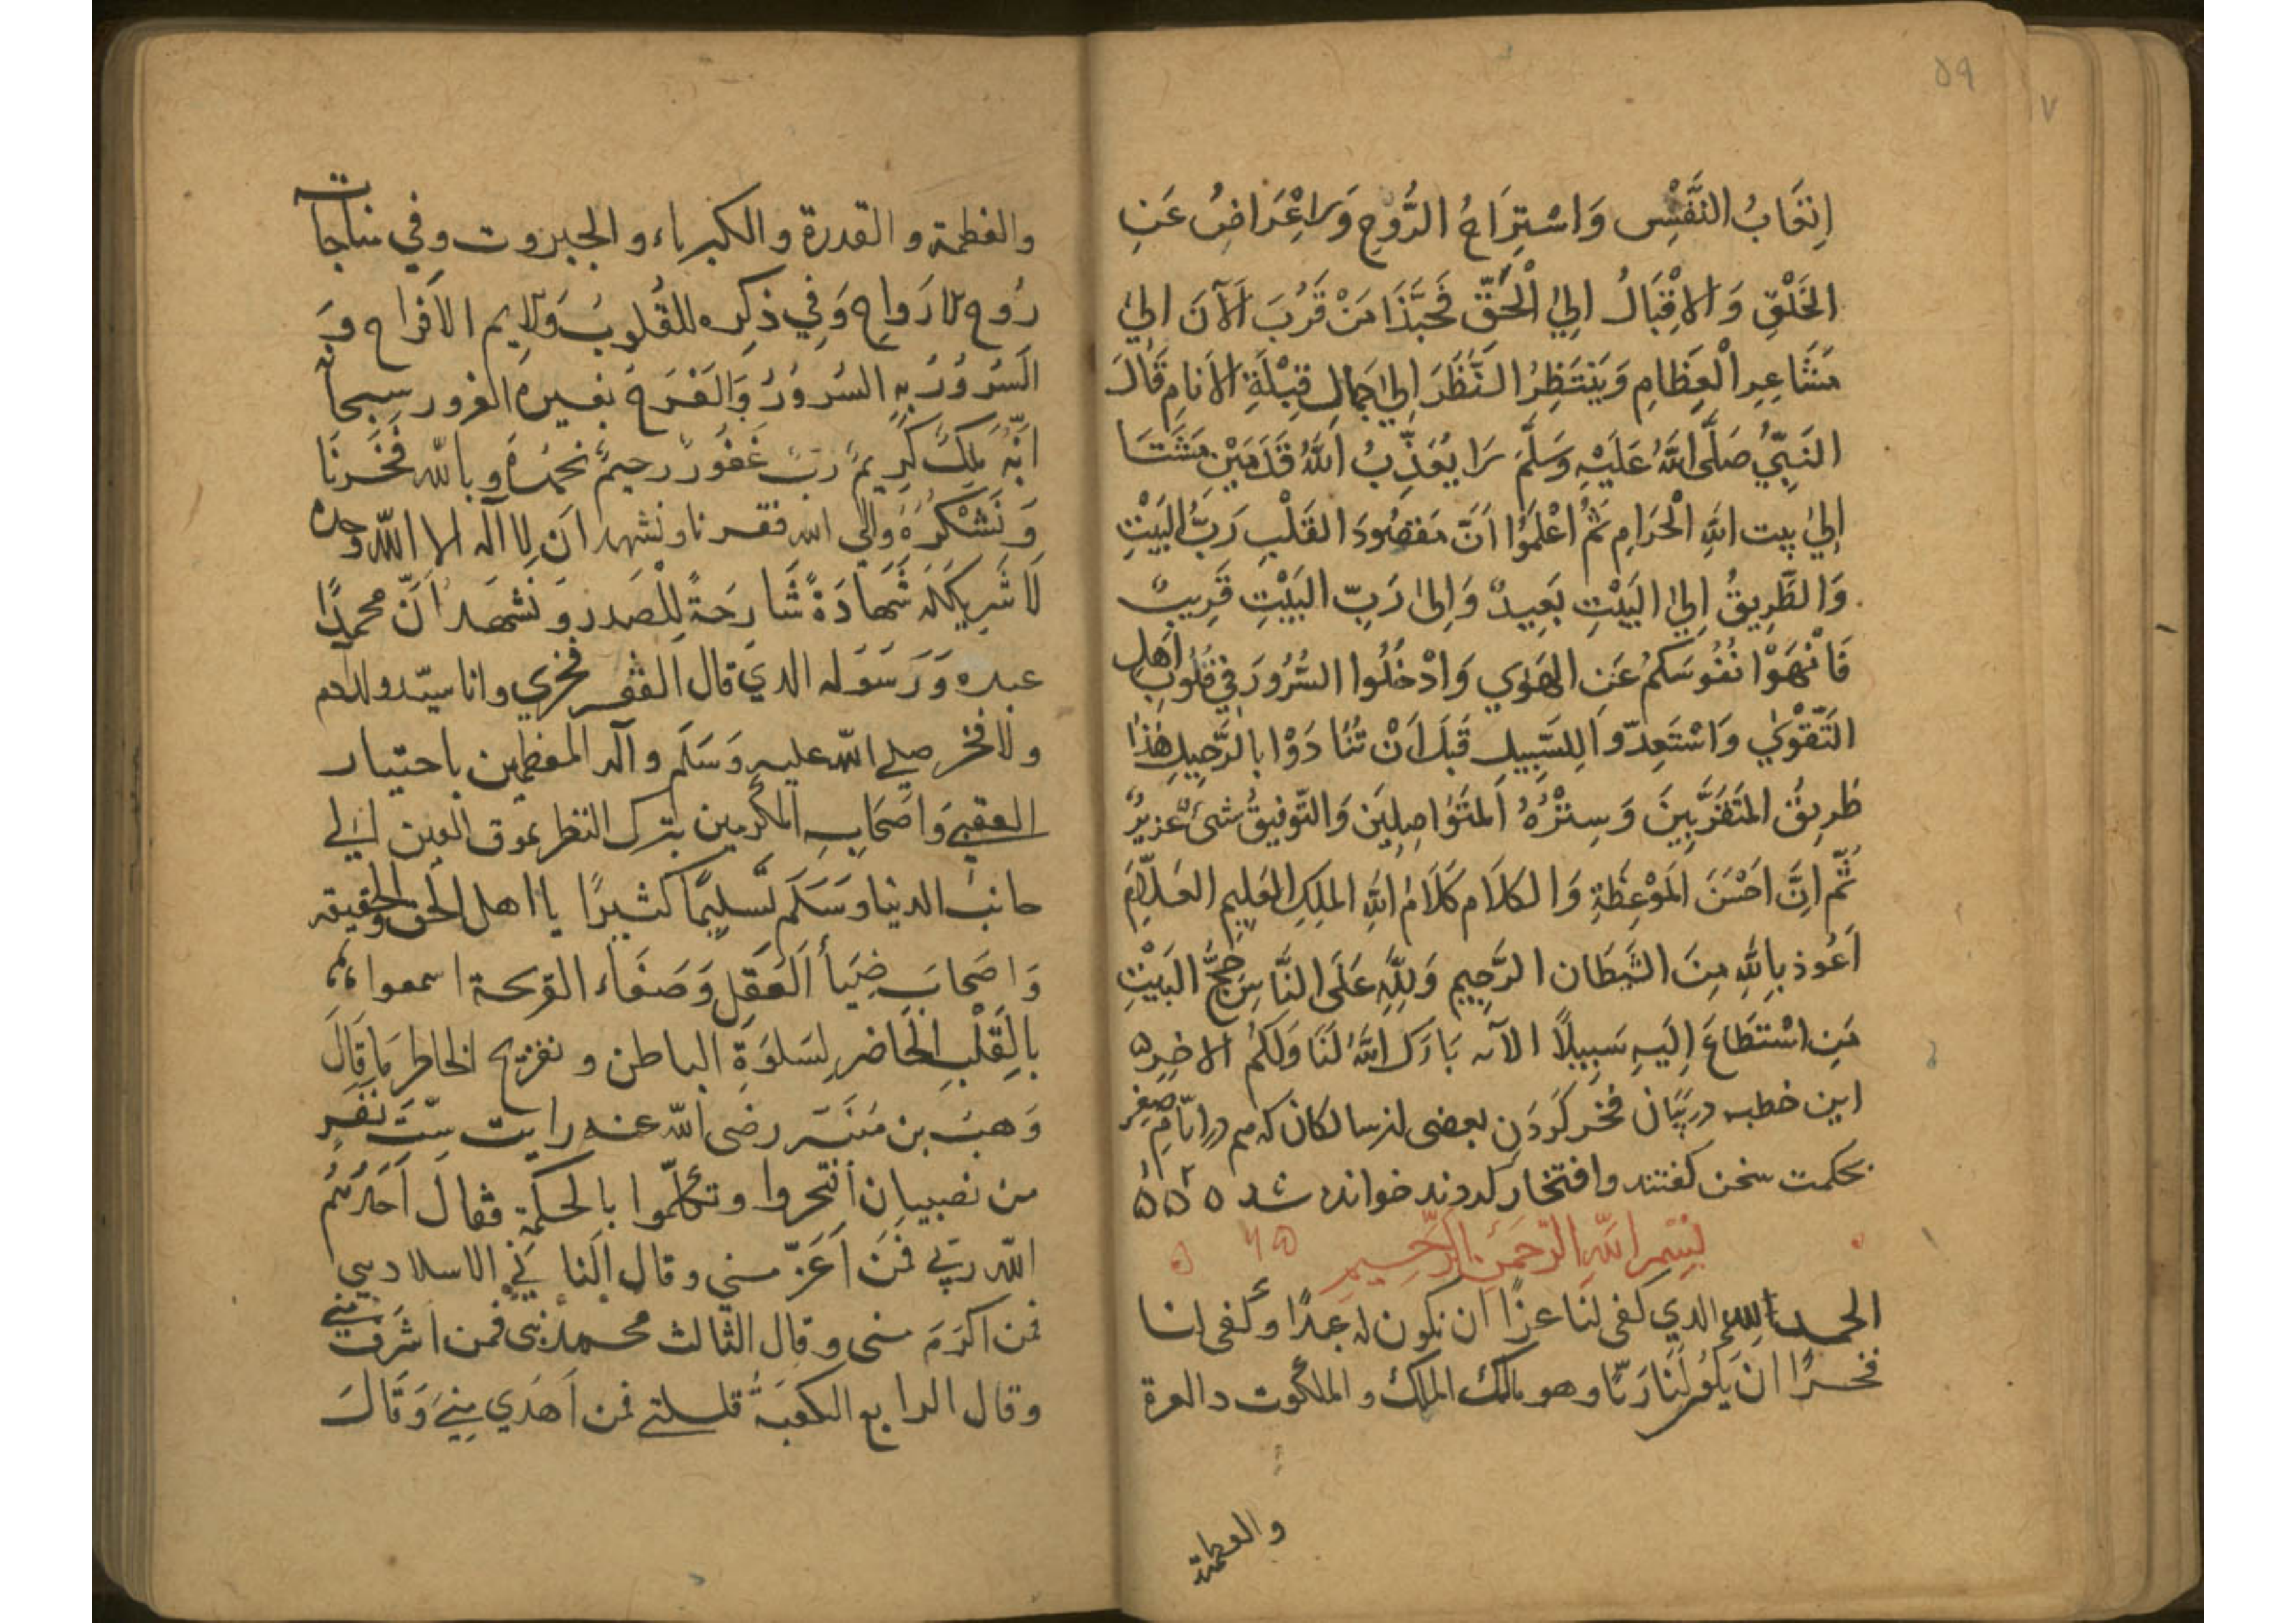 ٥٩
٧
اِتعَابُ النَّفْسِ وَاسْتِرَاحُ الرُّوحِ وَالاِعْرَاضُ عَنِ
الخَلْقِ وَالاِقْبَالُ اِلىٰ الْحَقِّ فَحَبَّذَا مَنْ قَرُبَ الآنَ الىٰ
مَشَاعِرِ الْعِظَامِ وَيَنْتَظِرُ النَّظَرَ اِلىٰ جمالِ قِبْلَةِ الاَنامِ قَالَ
النَبِيُّ صَلَّى اللهُ عَلَيْهِ وَسَلَّمَ لَا يُعَذِّبُ اللهُ قَدَمَيْنِ مَشَتَا
اِلىٰ بيت اللهِ الْحَرَامِ ثُمَّ اعْلَمُوا اَنَّ مَقصُودَ القَلْبِ رَبُّ البَيْتِ
وَالطَّرِيقُ اِلىٰ البَيْتِ بَعِيدٌ وَاِلىٰ رَبِّ البَيْتِ قَرِيبٌ
فَانْهَوْا نُفُوسَكُمْ عَنِ الهَوٰي وَادْخُلُوا السُّرُورَ فِي قُلُوبِ اَهلِ
التَّقْوٰي وَاسْتَعِدّوا لِلسَّبِيلِ قَبلَ اَنْ تُنَادَوْا بِالرَّحِيلِ هٰذَا
طَرِيقُ المُتَقَرَّبِينَ وَسِتْرُهُ المُتَوَاصِلِينَ وَالتّوفِيقُ شَىْءٌ عَزِيزٌ
ثُمّ اِنَّ اَحْسَنَ المَوْعِظَةِ وَالكَلَامِ كَلَامُ اللهِ المَلِكِ العَلِيمِ العَلَّامِ
اَعُوذ بِاللهِ مِنَ الشَيطَان الرَّجِيمِ وَلِلّهِ عَلَى النَّاسِ حِجُّ البَيْتِ
مَنِ اسْتَطَاعَ اِلَيهِ سَبِيلًا الآىه بَارَكَ اللهُ لَنَا وَلَكُمْ الا خِرِه
این خطبه در بیان فخر کردن بعضی از سالکان که هم در ایّامِ صِغَر
بحکمت سخن گفتند و افتخار کردند خوانده شد ۵ ۵ ۵
بِسْمِ اللهِ الرَّحْمَنِ الرَّحِيمِ
الحمد لله الذي كفى لنَا عزًا ان نكون له عبدًا وكفى لنا
فخرًا ان يكون لَنَا رَبًّا وهو مالك الملك و الملكوت و العزة
والعظمة
والعظمة و القدرة و الكبرياء و الجبروت وفي مناجات
رُوح للارَواح وَفِي ذِكره للقُلوب وَلايم الافراح وَبِه
السُرورُ بِهِ السُرورُ وَالفَرَح بغيره الغرور سبحانه
انّه مَلِكٌ كريمٌ رَبّ غَفورٌ رحيمٌ نحمدُه وبالله فَخَرنَا
وَنَشْكُرُهُ والى الله فقرنا ونشهد ان لا اله الا اللّه وحده
لَا شَريكَ لَه شَهَادَةً شَارِحَةً لِلصَدر ونَشهَد اَنّ محمدًا
عبده وَرَسَولَه الذي قال الفَقر فخري وانا سيّد ولد آدم
ولا فخر صلى الله عليه وَسَلَم وآله المعظمين باختيار
العقبى وَاصحَابِهِ المكرمين بترك النظر بموق العين الى
جانب الدنيا وَسَلَم تَسليمًا كثيرًا يا اهل الحق والحقيقه
وَاصحَاب ضِيَأ العَقلِ وَصَفَاء القريحة اسمعوا
بالقَلبِ الحَاضر لِسَلوَةِ الباطن و تفريح الخاطر مَا قَالَ
وَهب بن مُنَبّه رضى الله عنه رايت سِتّ نفرٍ
من نصبيبان افتخروا و تكلّموا بالحكمة فقال اَحَدُهُم
اللّه ربّى فَمَن اَعَزّ منى وقال الثانى الاسلام دينى
فمن اكرَمَ منى وقال الثالث محمد نبى فمن اشرف منى
وقال الرابع الكعبَةُ قبلتى فمن اَهدَي مِنّى وَقَالَ